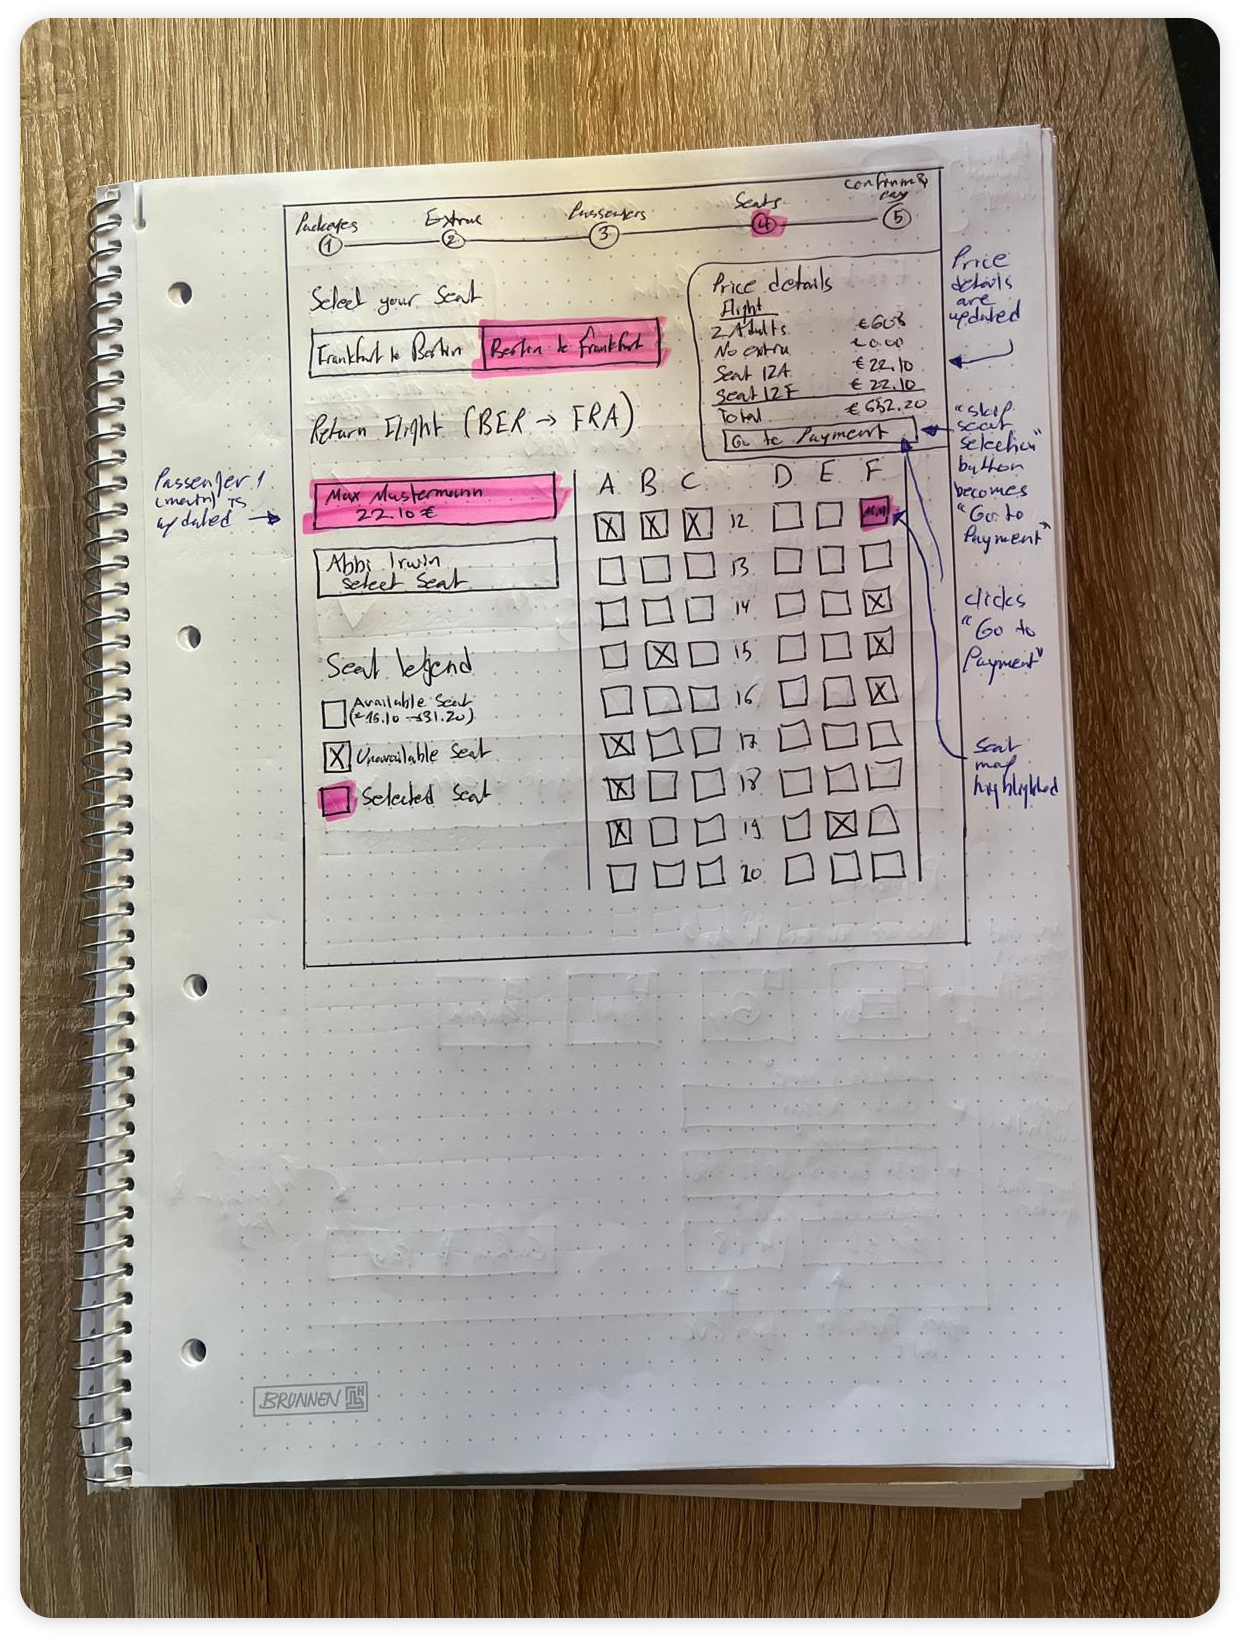 Packages
Extras
Passengers
Seats
Confirm &
pay
1
2
3
4
5
Select your Seat
Frankfurt to Berlin
Berlin to Frankfurt
Return Flight (BER → FRA)
Price details
Flight
2 Adults €608
No extra €0.00
Seat 12A €22.10
Seat 12F €22.10
Total €652.20
Go to Payment
Max Mustermann
22.10 €
Abbi Irwin
Select Seat
Seat legend
Available Seat
Unavailable Seat
Selected Seat
A B C D E F
X X X 12 MM
13
14 X
X 15 X
16 X
X 17
X 18
X 19 X
20
Passenger 1
is
updated
Price
details
are
updated
"Skip
seat
selection"
button
becomes
"Go to
Payment"
clicks
"Go to
Payment"
Seat
map
highlighted
BRUNNEN